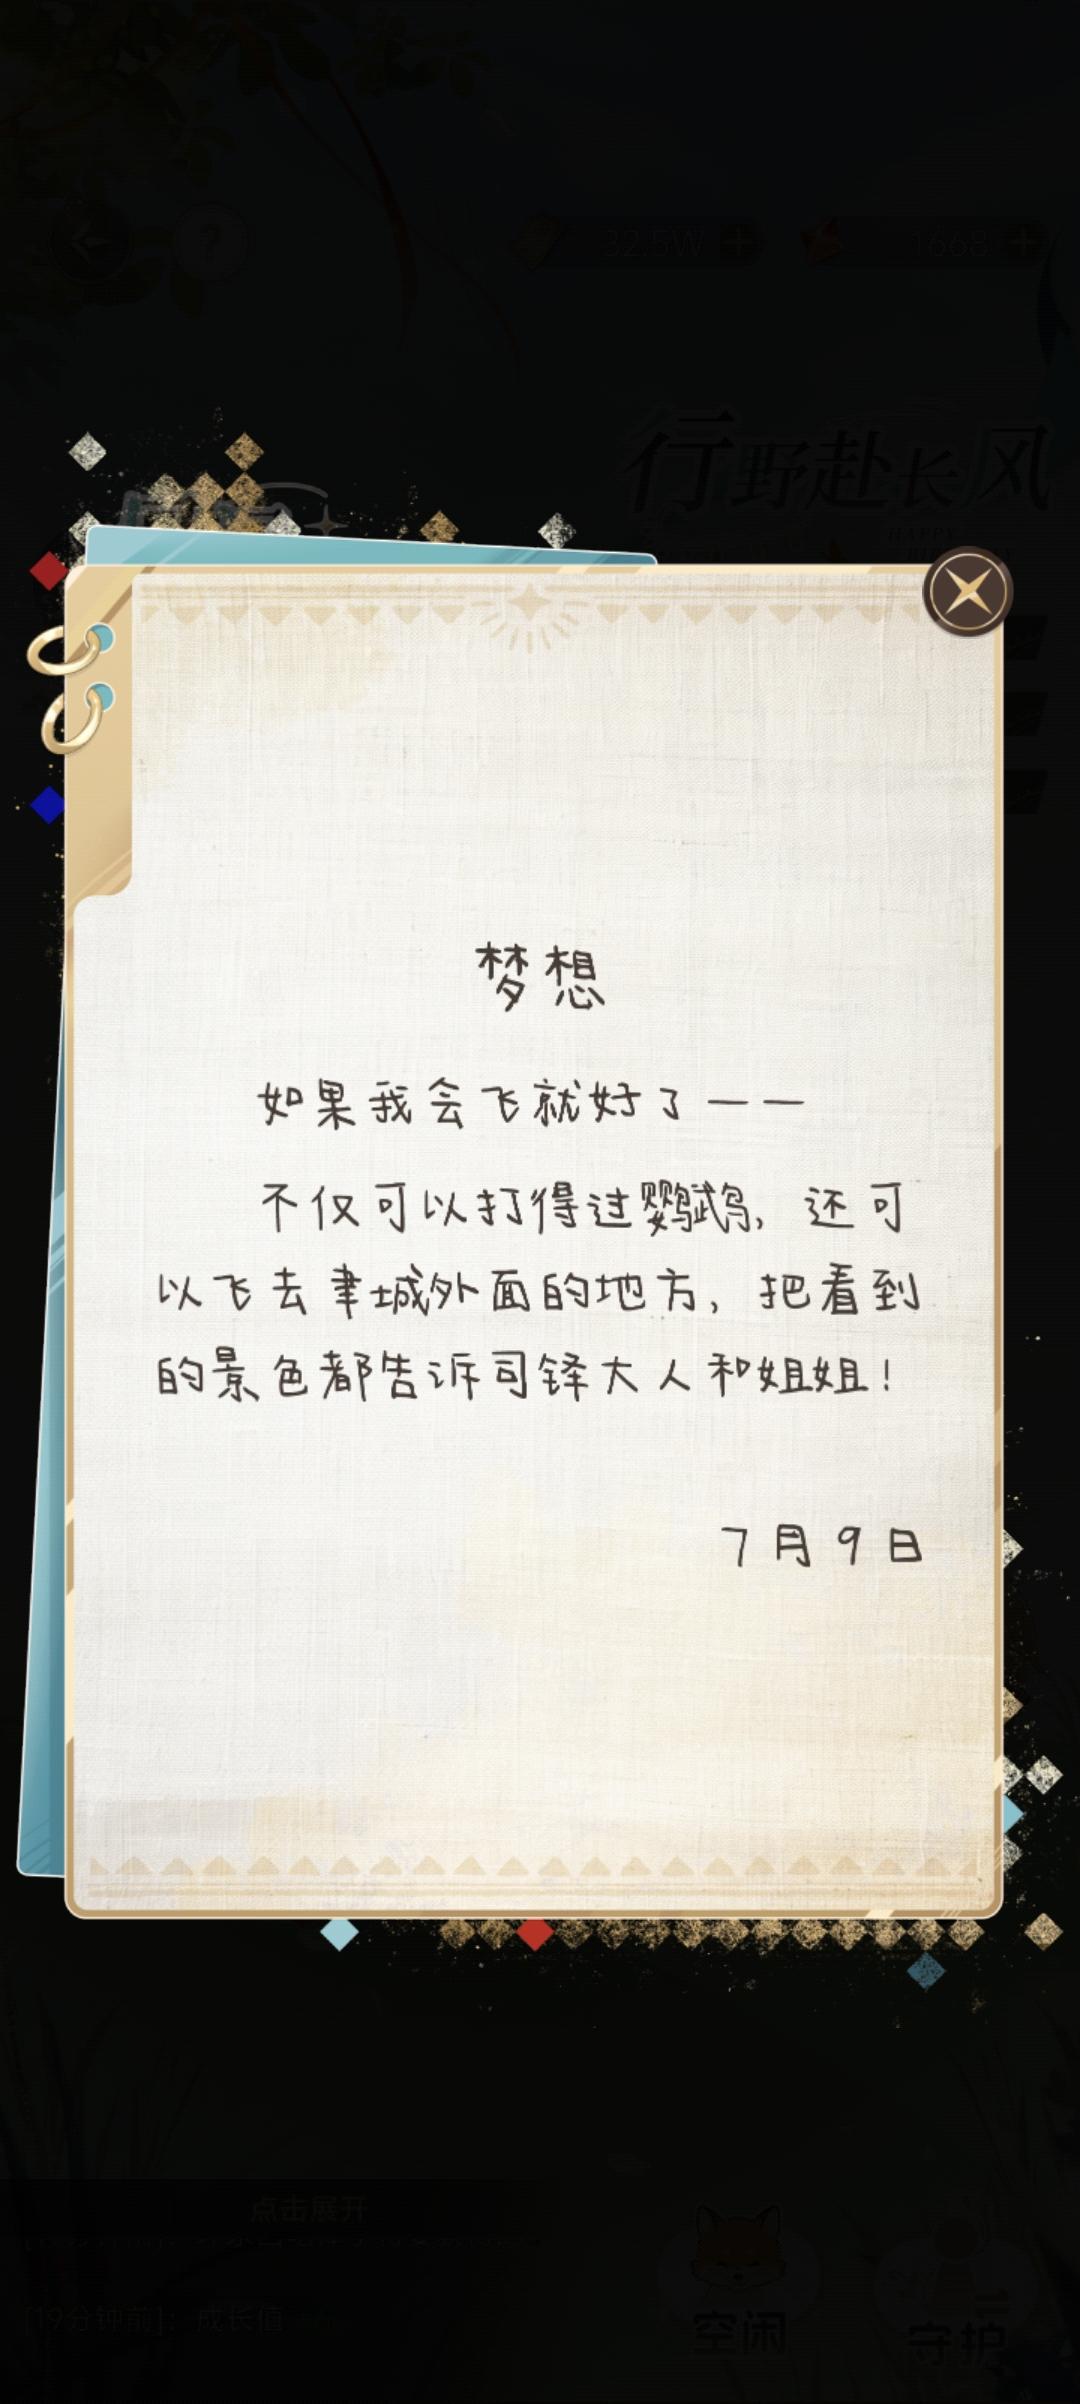 32.5W
1668
行野赴长风
HAPPY
梦想
如果我会飞就好了——
不仅可以打得过鹦鹉，还可
以飞去聿城外面的地方，把看到
的景色都告诉司铎大人和姐姐！
7月9日
点击展开
[19分钟前]：成长值
空闲
守护